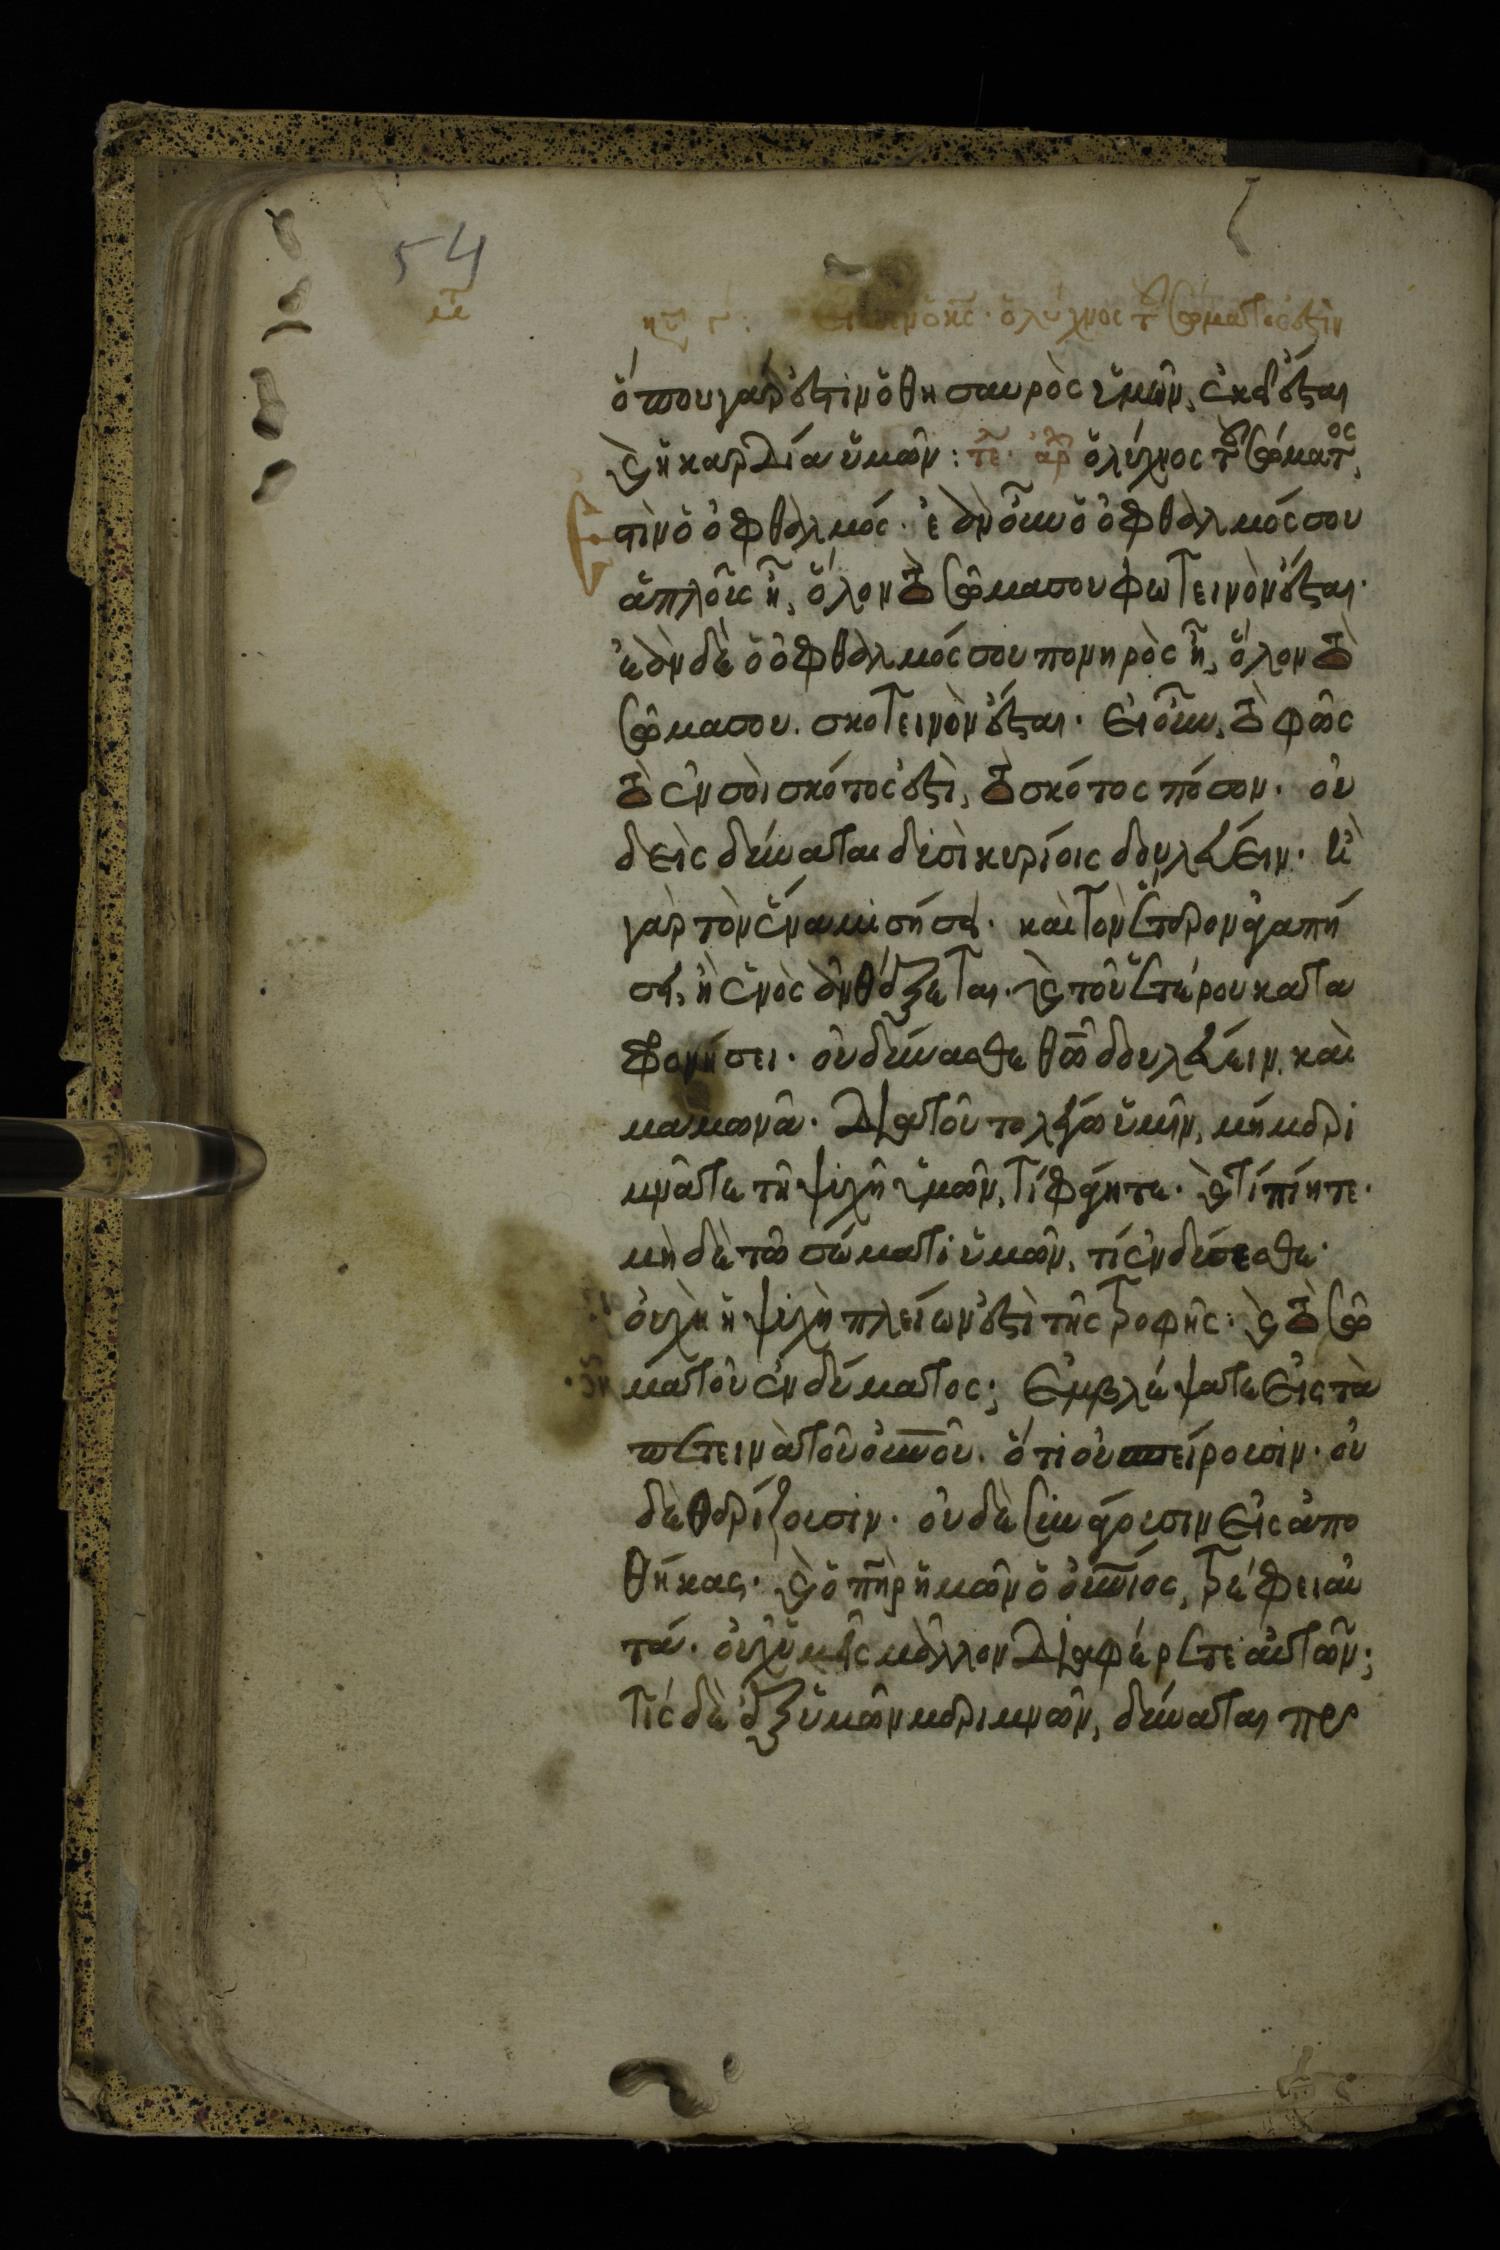 54
εἶπεν ὁ κς· ὁ λύχνος τοῦ σώματός ἐστιν
ὅπου γάρ ἐστιν ὁ θησαυρὸς ὑμῶν, ἐκεῖ ἔσται
καὶ ἡ καρδία ὑμῶν: τε· ἀρ ὁ λύχνος τοῦ σώματος,
στὶν ὁ ὀφθαλμός· ἐὰν οὖν ὁ ὀφθαλμός σου
ἁπλοῦς ἦ, ὅλον τὸ σῶμα σου φωτεινὸν ἔσται·
ἐὰν δὲ ὁ ὀφθαλμός σου πονηρὸς ἦ, ὅλον τὸ
σῶμα σου. σκοτεινὸν ἔσται· εἰ οὖν, τὸ φῶς
τὸ ἐν σοὶ σκότος ἐστὶ, τὸ σκότος πόσον· οὐ
δεὶς δύναται δυσὶ κυρίοις δουλεύειν· ἢ
γὰρ τὸν ἕνα μισήσει· καὶ τὸν ἕτερον ἀγαπή
σει, ἢ ἑνὸς ἀνθέξεται· καὶ τοῦ ἑτέρου κατα
φρονήσει· οὐ δύνασθε θῶ δουλεύειν, καὶ
μαμωνᾶ· διατοῦτο λέγω ὑμῖν, μὴ μερι
μνᾶτε τῆ ψυχῆ ὑμῶν, τί φάγητε· καὶ τί πίητε·
μὴ δὲ τῶ σώματι ὑμῶν, τί ἐνδύσεσθε·
οὐχὶ ἡ ψυχὴ πλείων ἐστὶ τῆς τροφῆς· καὶ τὸ σῶ
μα τοῦ ἐνδύματος; ἐμβλέψατε εἰς τὰ
πετεινὰ τοῦ οὐνοῦ. ὅτι οὐ σπείρουσιν· οὐ
δὲ θερίζουσιν· οὐδὲ συνάγουσιν εἰς ἀπο
θήκας· καὶ ὁ πηρ ἡμῶν ὁ οὐνιος, τρέφει αὐ
τά· οὐχ ὑμεῖς μᾶλλον διαφέρετε αὐτῶν;
τίς δὲ ἐξ ὑμῶν μεριμνῶν, δύναται προσ